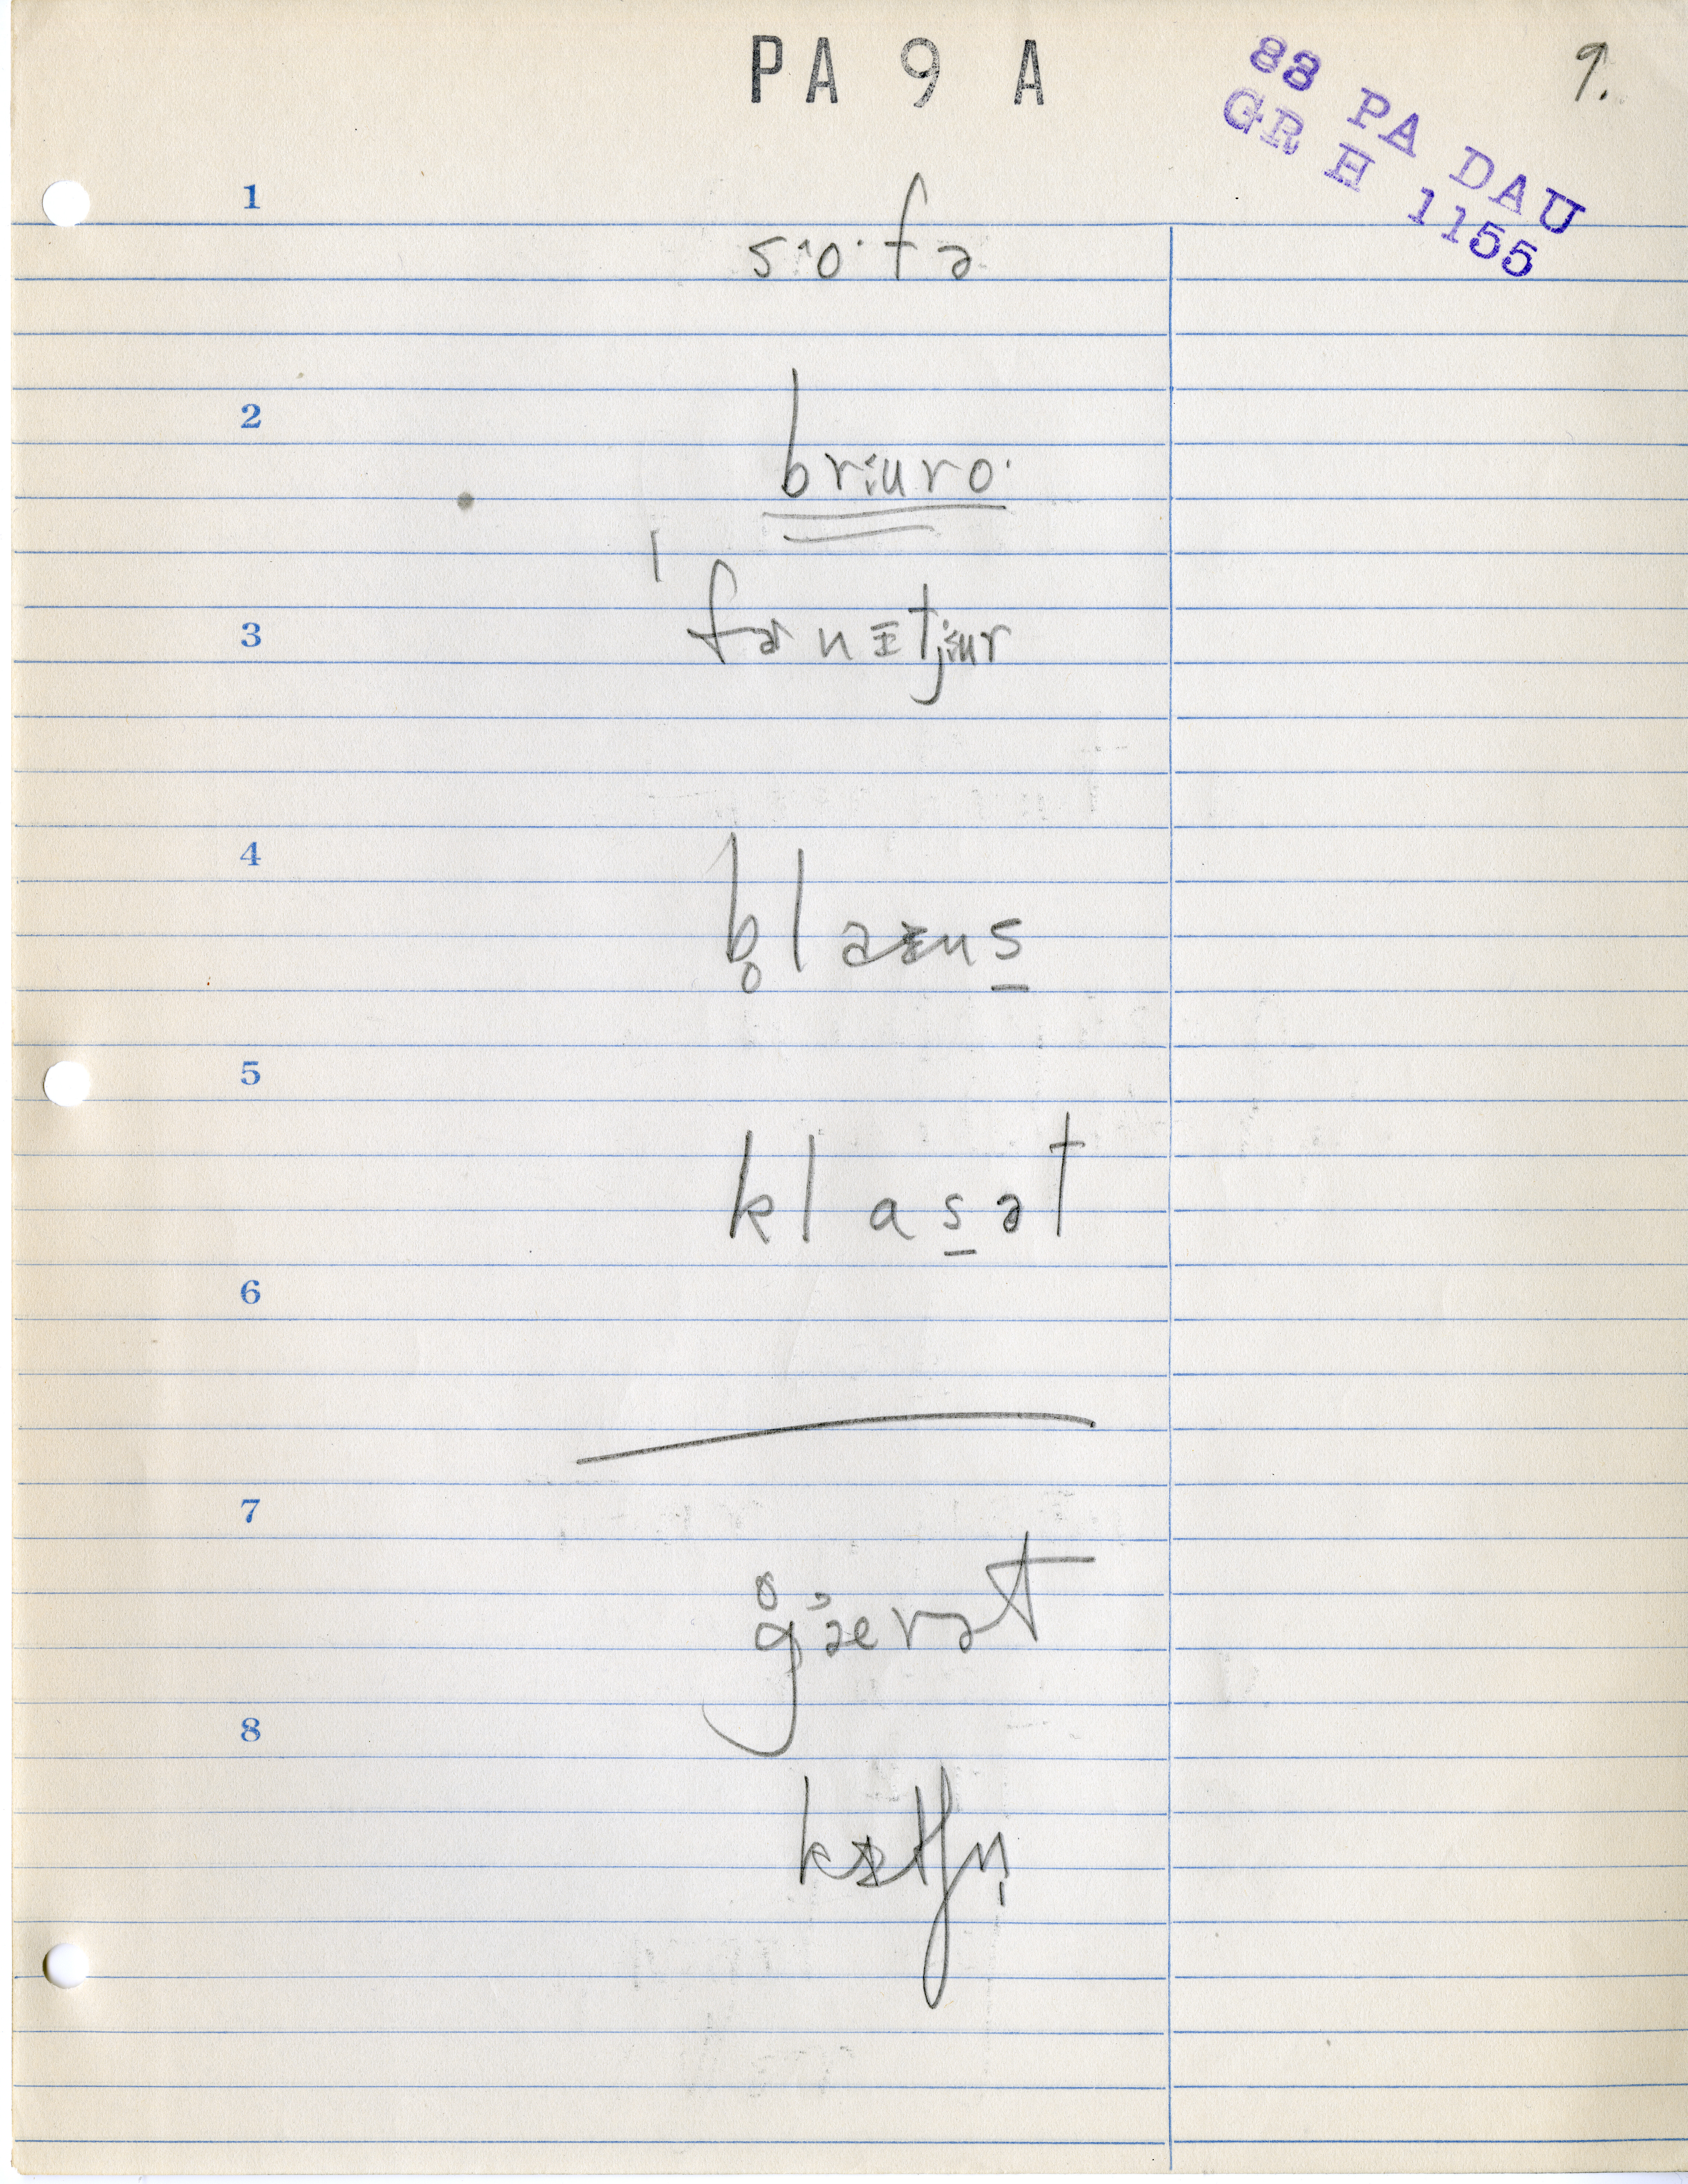 PA 9 A
88 PA DAU
GR H 1155
9.
1
sˑoˑfə
2
brɨuroˑ
3
ˈfɚnɪtjɨur
4
b̥laɪns̱
5
klas̱ət
6
7
g̊ˈærət
8
kɪtʃn̩